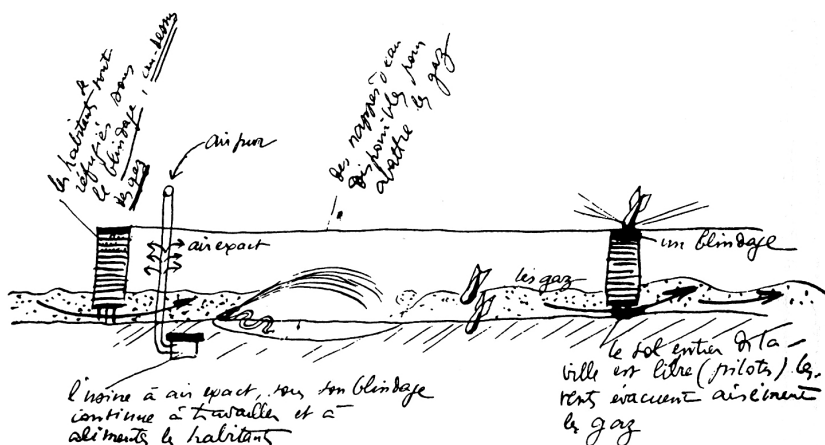 les habitants se sont
réfugiés sous
le blindage, au-dessus
des gaz
air pur
air exact
des nappes d'eau
disponibles pour
abattre les gaz
les gaz
un blindage
l'usine à air exact, sous son blindage
continue à travailler et à
alimenter les habitants
le sol entier de la
ville est libre (pilotis) les
vents évacuent aisément
les gaz